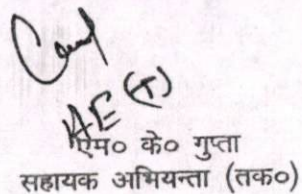 AE (T)
एम० के० गुप्ता
सहायक अभियन्ता (तक०)